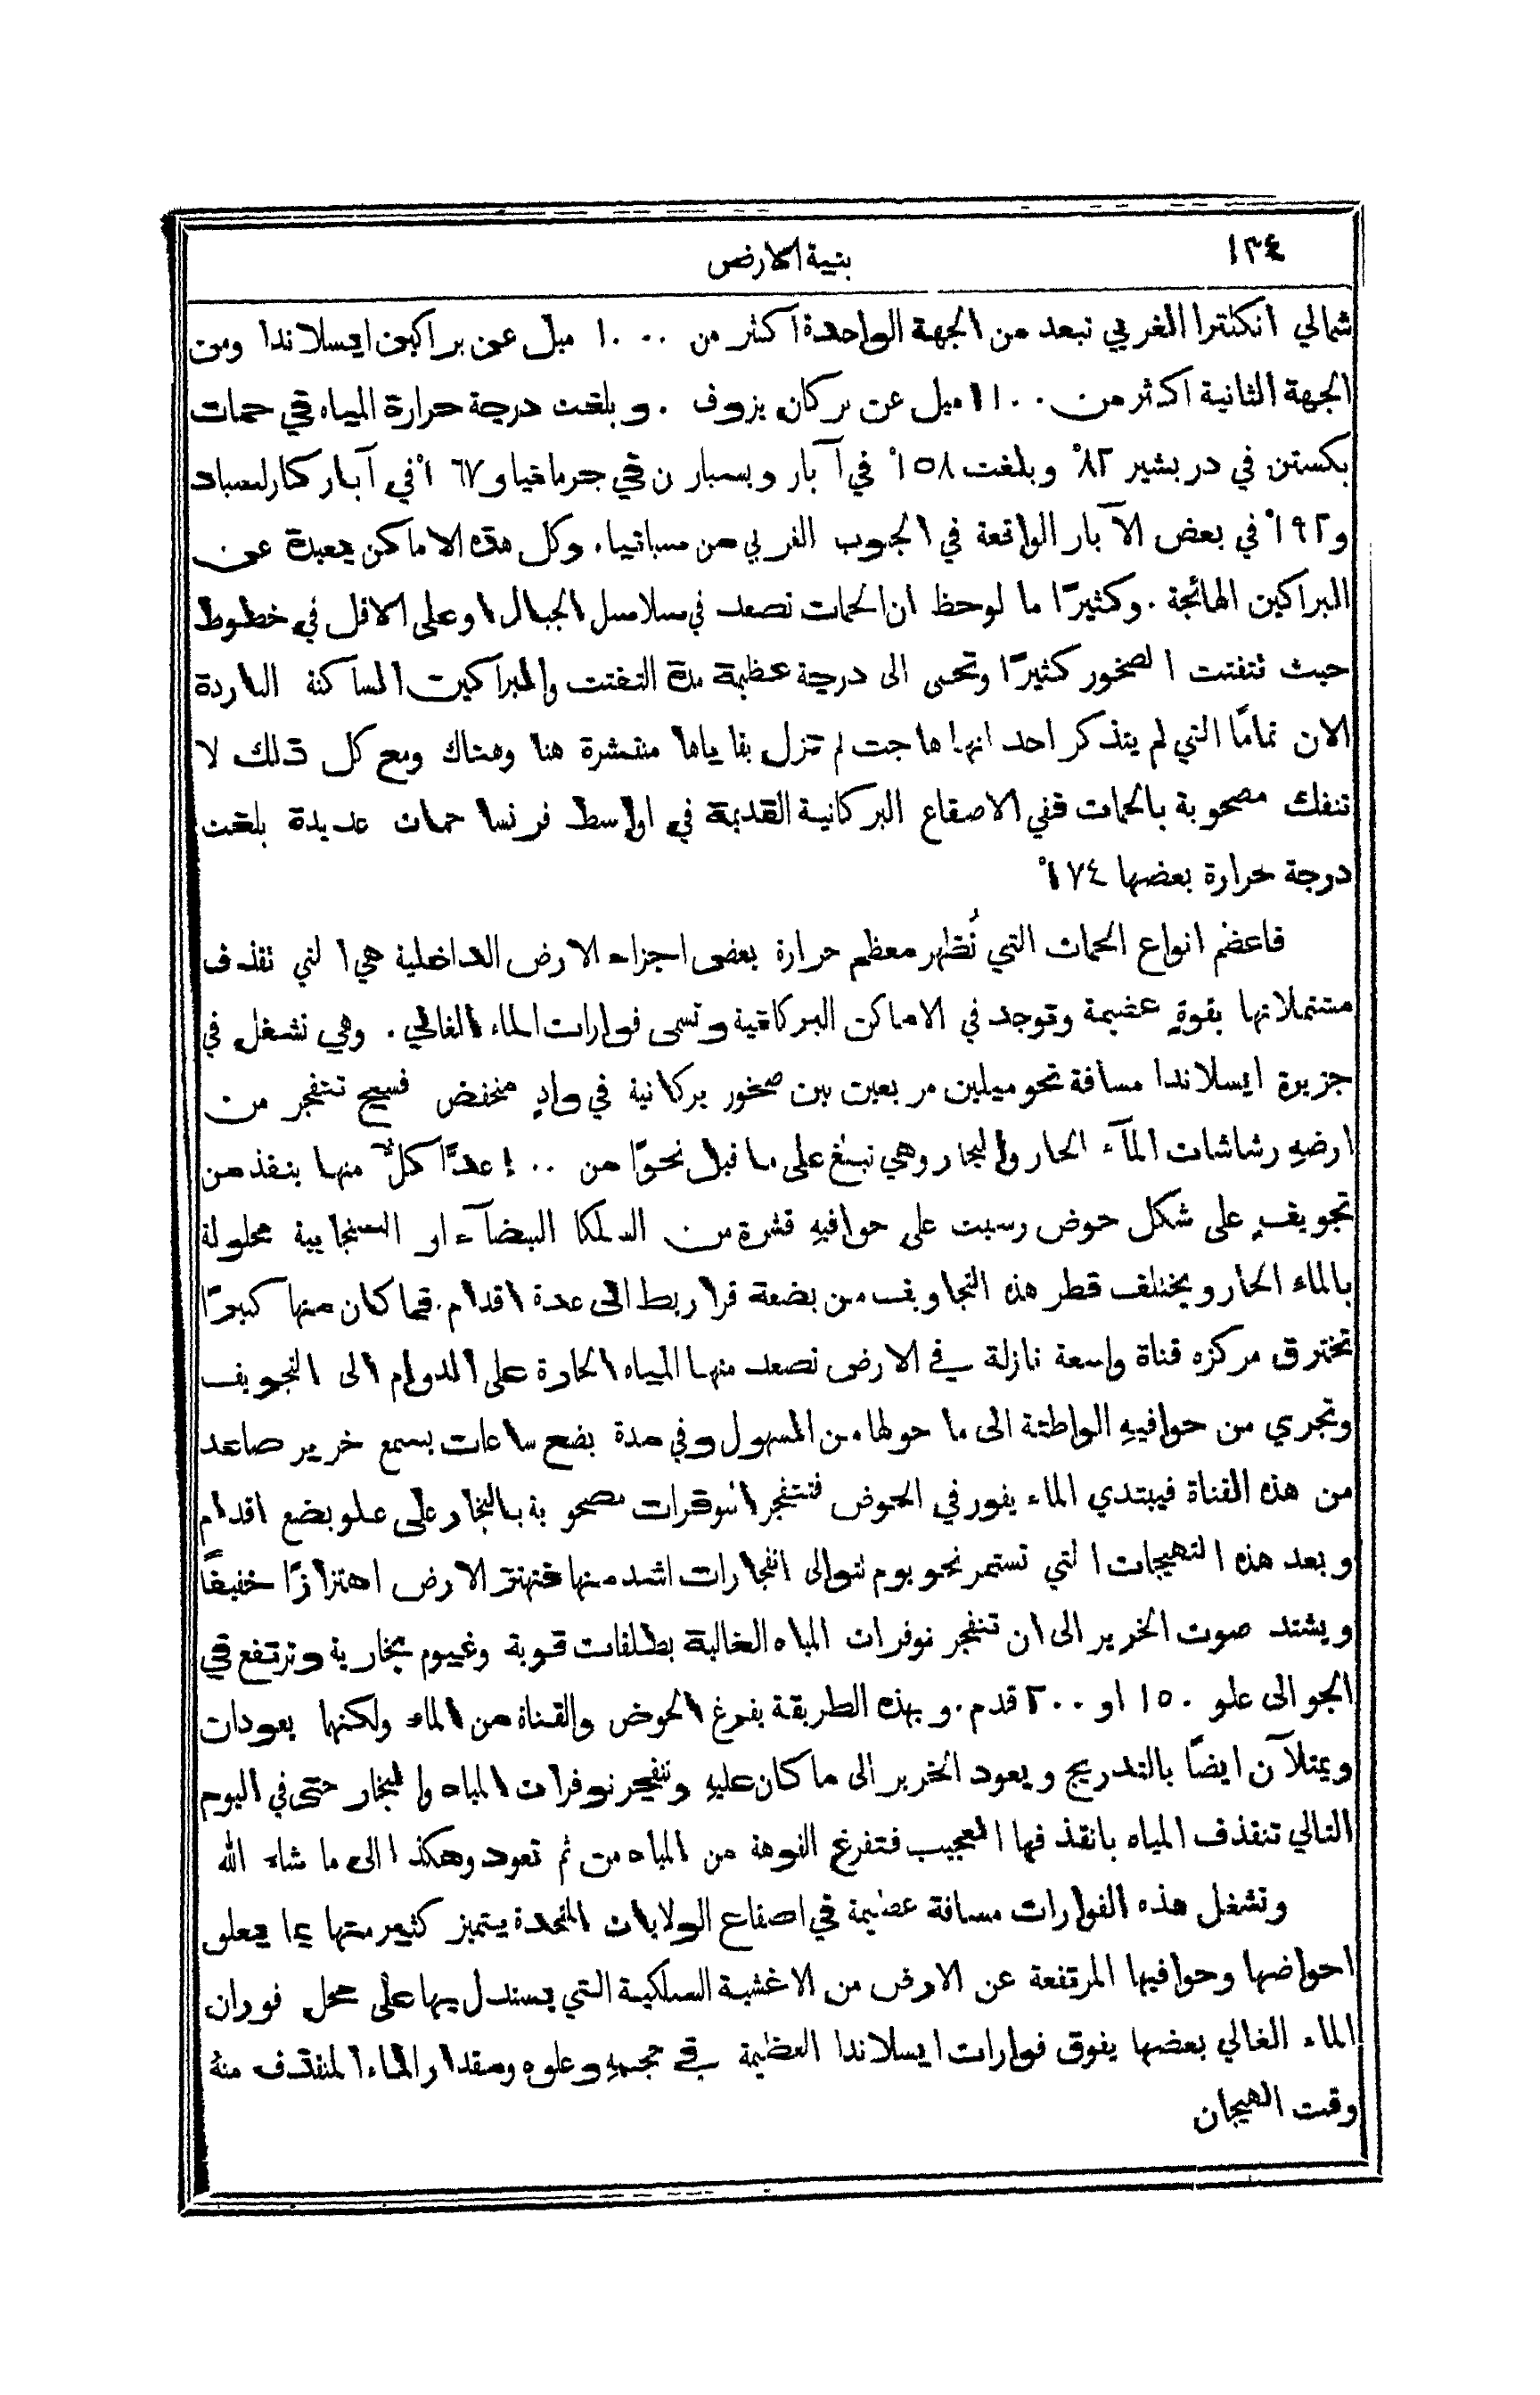 ١٣٤
بنية الارض
شمالي انكلترا الغربي تبعد من الجهة الواحدة اكثر من ١٠٠٠ ميل عن براكين ايسلاندا ومن
الجهة الثانية اكثر من ١١٠٠ ميل عن بركان يزوف . وبلغت درجة حرارة المياه في حمات
بكستن في دربشير ٨٢° وبلغت ١٥٨° في آبار ويسبارن في جرمانيا و١٦٧° في آبار كارلسباد
و١٩٢° في بعض الآبار الواقعة في الجنوب الغربي من سبانيا. وكل هذه الاماكن بعيدة عن
البراكين الهائجة . وكثيرًا ما لوحظ ان الحمات تصعد في سلاسل الجبال او على الاقل في خطوط
حيث تتفتت الصخور كثيرًا وتحمى الى درجة عظيمة مدة التفتت والبراكين الساكنة الباردة
الان تمامًا التي لم يتذكر احد انها هاجت لم تزل بقاياها منتشرة هنا وهناك ومع كل ذلك لا
تنفك مصحوبة بالحمات ففي الاصقاع البركانية القديمة في اواسط فرنسا حمات عديدة بلغت
درجة حرارة بعضها ١٧٤°
فاعظم انواع الحمات التي تُظهر معظم حرارة بعض اجزاء الارض الداخلية هي التي تقذف
مشتملاتها بقوةٍ عظيمة وتوجد في الاماكن البركانية وتسمى فوارات الماء الغالي . وهي تشغل في
جزيرة ايسلاندا مسافة نحو ميلين مربعين بين صخور بركانية في وادٍ منخفض فسيح تنفجر من
ارضهِ رشاشات المآء الحار والبخار وهي تبلغ على ما قيل نحوًا من ١٠٠ عدًّا كلٌّ منها ينفذ من
تجويفٍ على شكل حوض رسبت على حوافيهِ قشرة من السلكا البيضآء او السنجابية محلولة
بالماء الحار ويختلف قطر هذه التجاويف من بضعة قراريط الى عدة اقدام. فما كان منها كبيرًا
تخترق مركزه قناة واسعة نازلة في الارض تصعد منها المياه الحارة على الدوام الى التجويف
وتجري من حوافيهِ الواطئة الى ما حولها من السهول وفي مدة بضع ساعات يسمع خرير صاعد
من هذه القناة فيبتدي الماء يفور في الحوض فتنفجر النوفرات مصحوبة بالبخار على علو بضع اقدام
وبعد هذه التهيجات التي تستمر نحو يوم تتوالى انفجارات اشد منها فتهتز الارض اهتزازًا خفيفًا
ويشتد صوت الخرير الى ان تنفجر نوفرات المياه الغالية بطلقات قوية وغيوم بخارية وترتفع في
الجو الى علو ١٥٠ او ٢٠٠ قدم. وبهذه الطريقة يفرغ الحوض والقناة من الماء ولكنها يعودان
ويمتلآن ايضًا بالتدريج ويعود الخرير الى ما كان عليهِ وتنفجر نوفرات المياه والبخار حتى في اليوم
التالي تنقذف المياه بانقذافها العجيب فتفرغ الفوهة من المياه من ثم تعود وهكذا الى ما شاء الله
وتشغل هذه الفوارات مسافة عظيمة في اصقاع الولايات المتحدة يتميز كثير منها بما يعلو
احواضها وحوافيها المرتفعة عن الارض من الاغشية السلكية التي يستدل بها على محل فوران
الماء الغالي بعضها يفوق فوارات ايسلاندا العظيمة في حجمهِ وعلوه ومقدار الماء المنقذف منه
وقت الهيجان